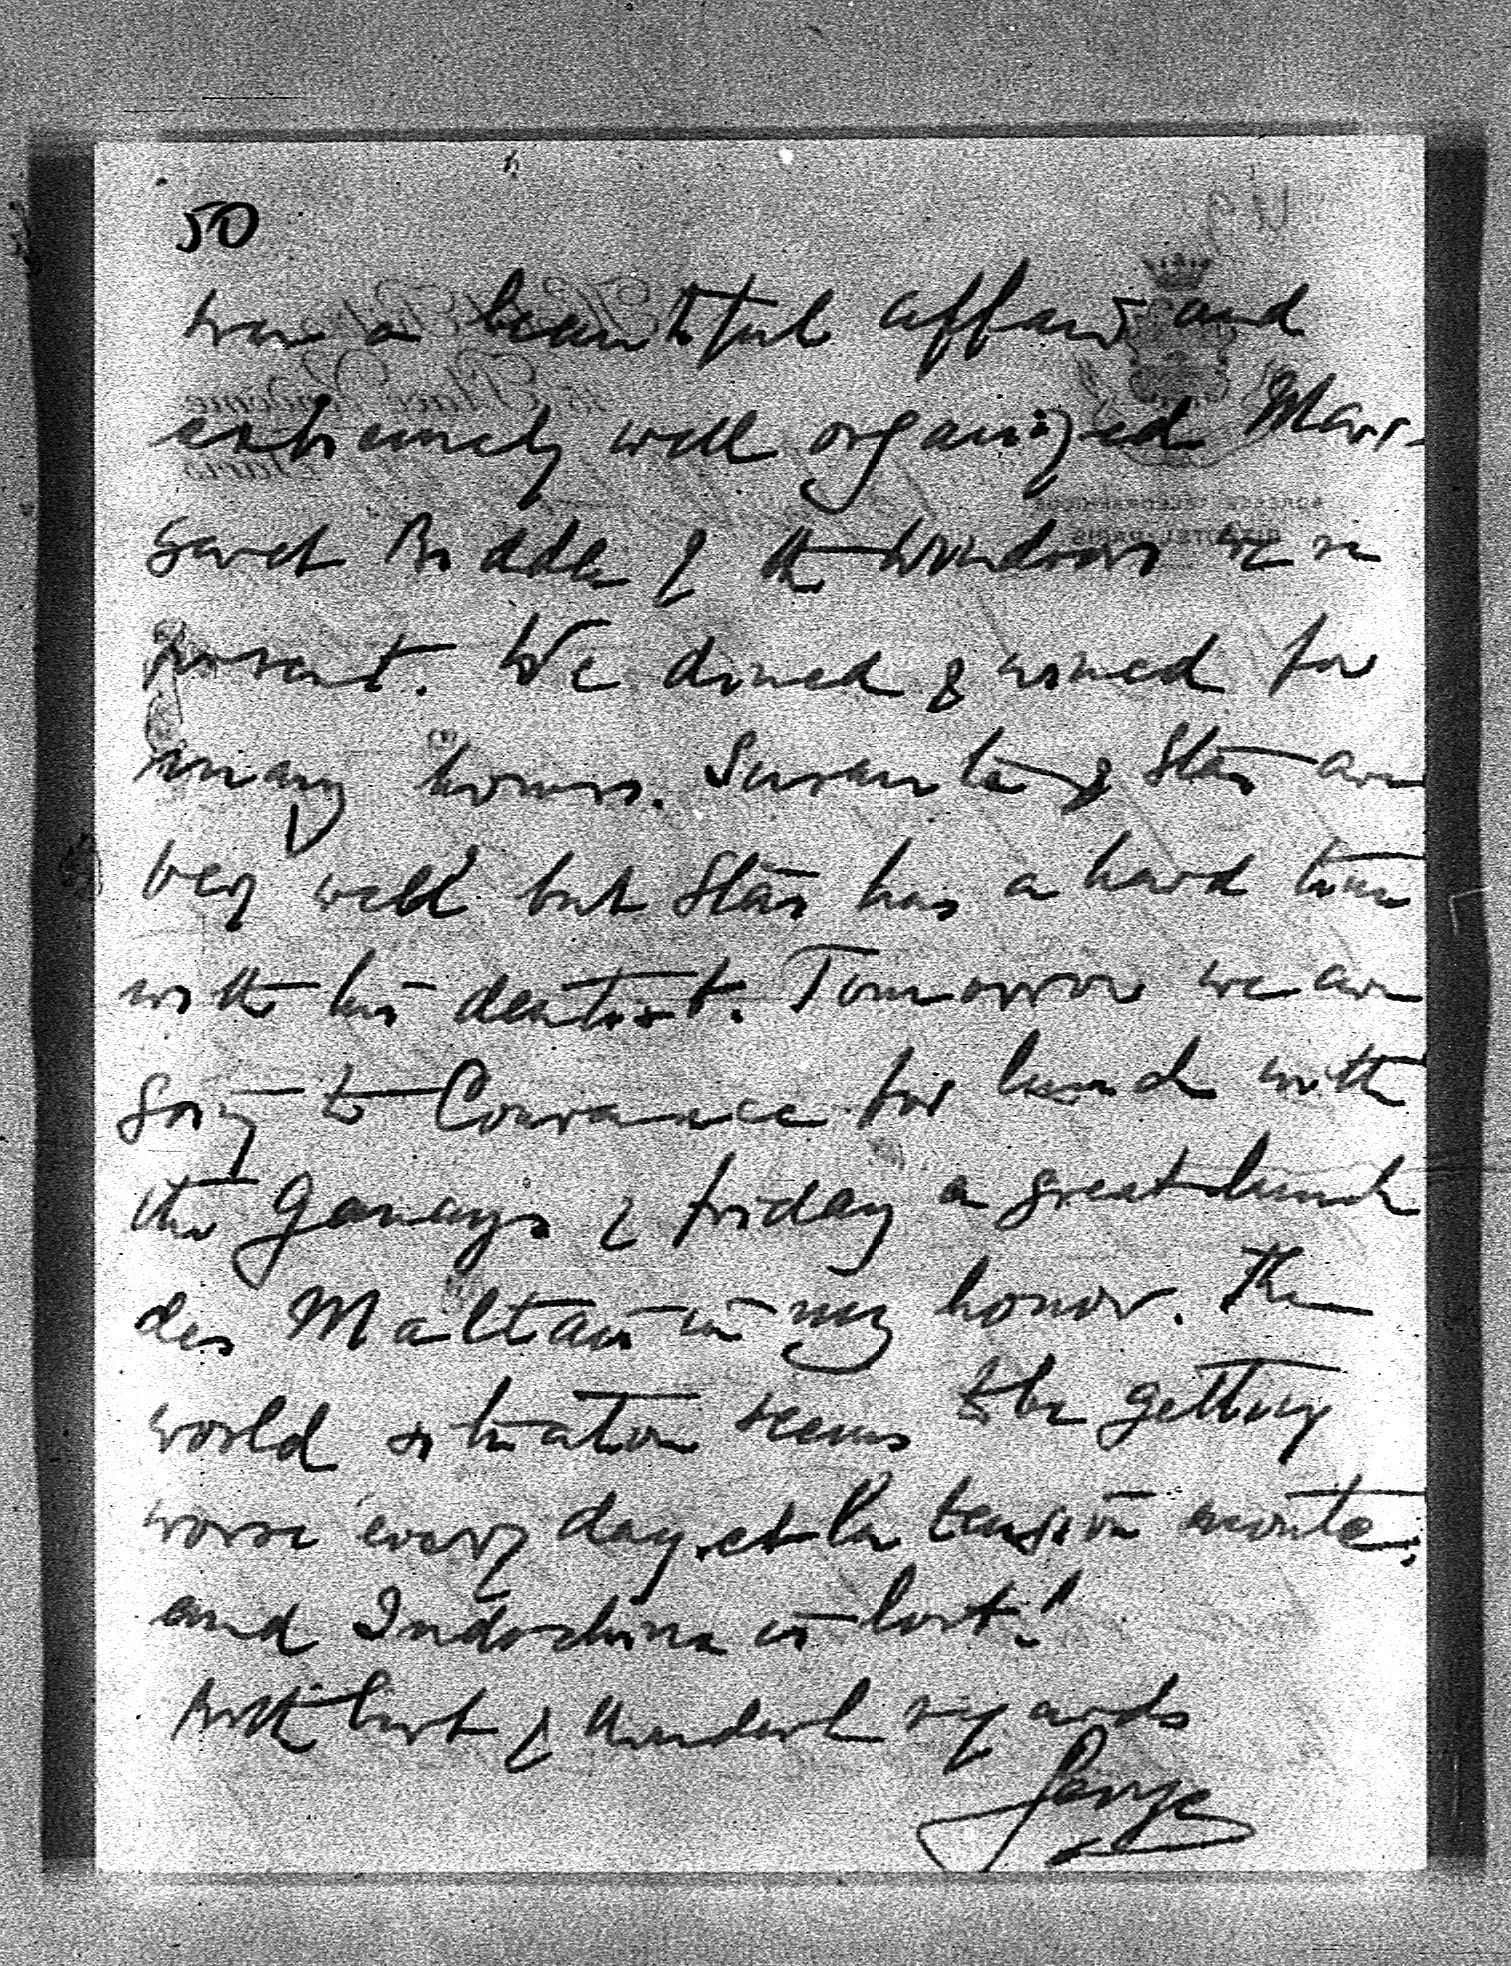 50
was a beautiful affair and
extremely well organized Mar-
garet Biddle & the Windsors were
present. We dined & wined for
many hours. & Stas are
very well but Stas has a hard time
with his dentist. Tomorrow we are
going to Courance for lunch with
the Ganays & friday a great lunch
des Maltais in my honor. The
world situation seems to be getting
worse every day. et la tension monte.
and Indochina is lost!
With best & regards